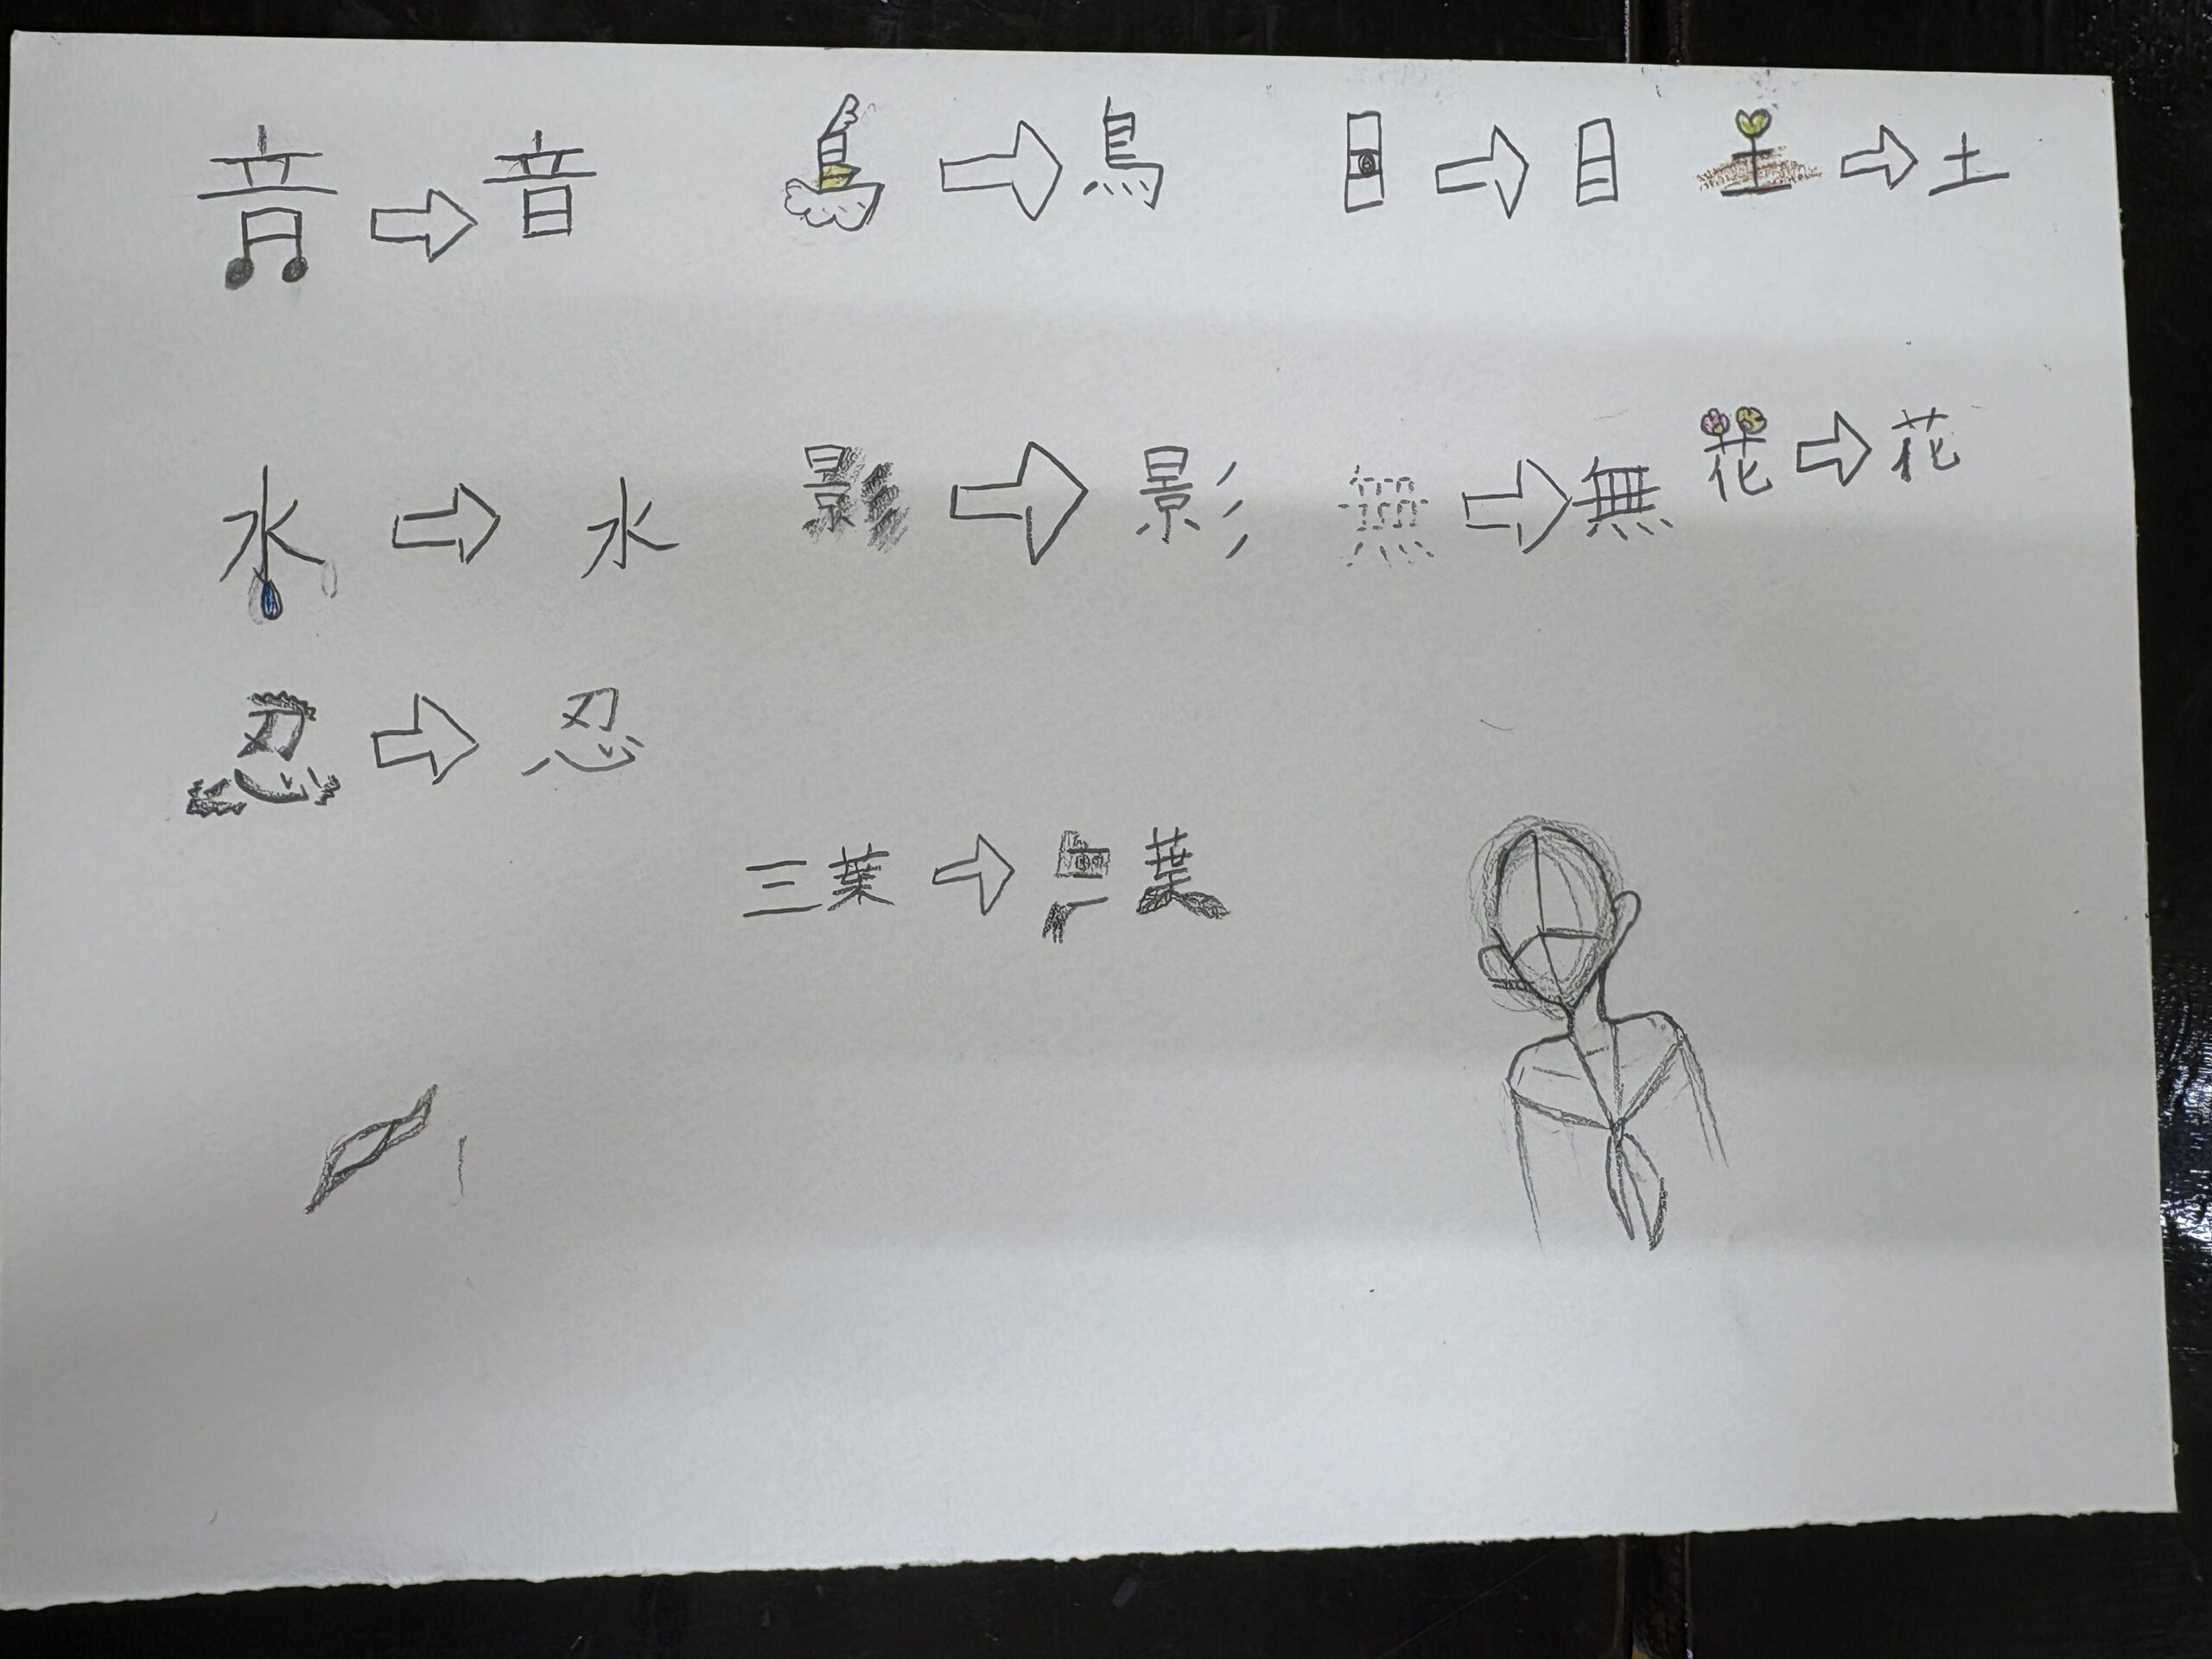 音 音 鳥 鳥 目 目 土 土
水 水 影 影 無 無 花 花
忍 忍
三葉 三葉